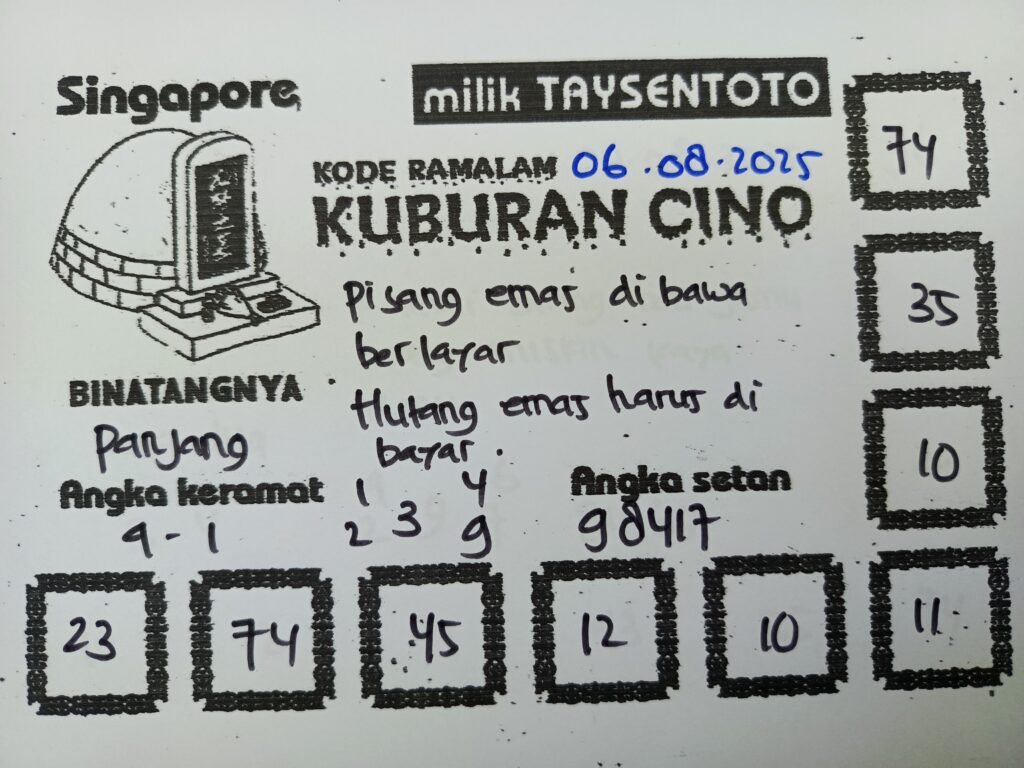 Singapore
milik TAYSENTOTO
KODE RAMALAM 06.08.2025
KUBURAN CINO
Pisang emas di bawa
berlayar
Hutang emas harus di
bayar.
BINATANGNYA
Panjang
Angka keramat
9 - 1
1 4
3
2 9
Angka setan
98417
74
35
10
23 74 45 12 10 11